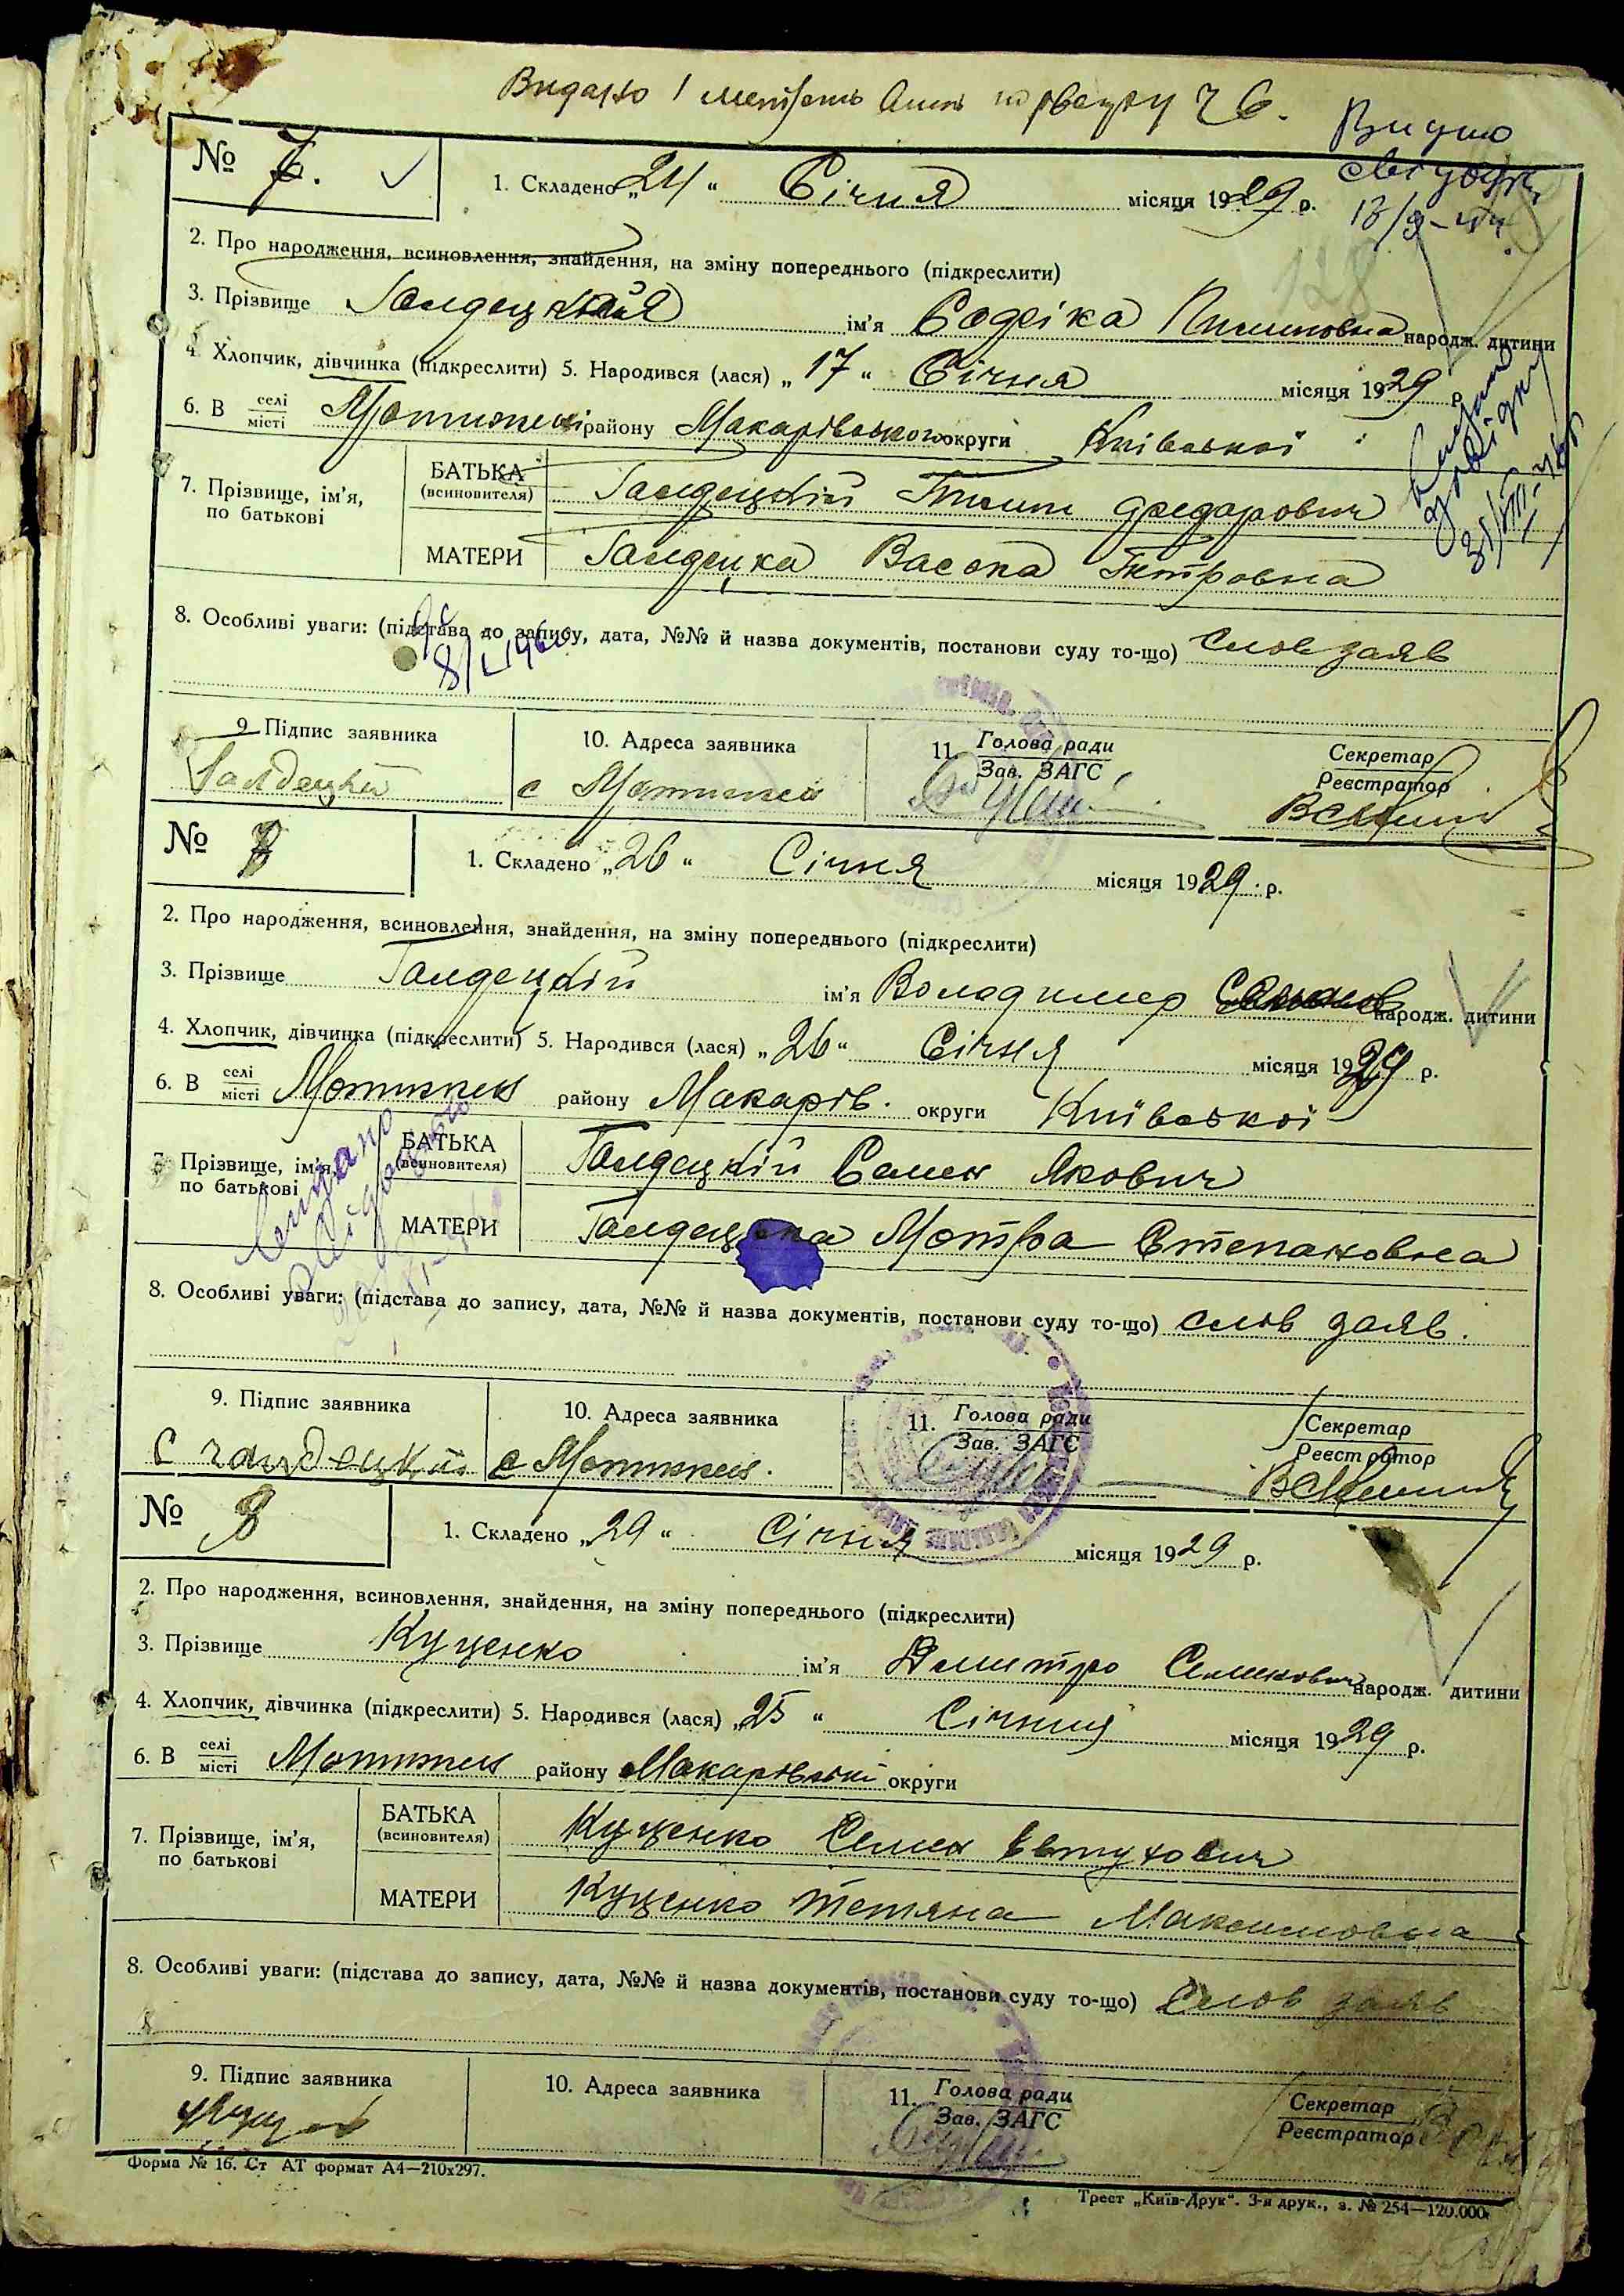 Видано
№ 7.
1. Складено „24“ Січня місяця 1929 р.
2. Про народження, всиновлення, знайдення, на зміну попереднього (підкреслити)
3. Прізвище Галдецкая ім'я Софіка Пилиповна народж. дитини
4. Хлопчик, дівчинка (підкреслити) 5. Народився (лася) „17“ Січня місяця 1929 р.
6. В селі місті Мотижені району Макарівського округи Київської
7. Прізвище, ім'я, по батькові
БАТЬКА (всиновителя) Галдецкій Пилип Федорович
МАТЕРИ Галдецка Васона Петровна
8. Особливі уваги: (підстава до запису, дата, №№ й назва документів, постанови суду то-що) слов заяв
9. Підпис заявника 10. Адреса заявника 11. Голова ради Зав. ЗАГС Секретар Реєстратор
Галдецкій с Мотижен
№ 8
1. Складено „26“ Січня місяця 1929 р.
2. Про народження, всиновлення, знайдення, на зміну попереднього (підкреслити)
3. Прізвище Галдецкій ім'я Володимер народж. дитини
4. Хлопчик, дівчинка (підкреслити) 5. Народився (лася) „26“ Січня місяця 1929 р.
6. В селі місті Мотижен району Макарів. округи Київської
7. Прізвище, ім'я, по батькові
БАТЬКА (всиновителя) Галдецкій Семен Якович
МАТЕРИ Галдецка Мотра Степановна
8. Особливі уваги: (підстава до запису, дата, №№ й назва документів, постанови суду то-що) слов заяв.
9. Підпис заявника 10. Адреса заявника 11. Голова ради Зав. ЗАГС Секретар Реєстратор
С галдецкий с Мотижен.
№ 9
1. Складено „29“ Січня місяця 1929 р.
2. Про народження, всиновлення, знайдення, на зміну попереднього (підкреслити)
3. Прізвище Куценко ім'я Дмитро Семенович народж. дитини
4. Хлопчик, дівчинка (підкреслити) 5. Народився (лася) „25“ Січния місяця 1929 р.
6. В селі місті Мотижен району Макарівські округи
7. Прізвище, ім'я, по батькові
БАТЬКА (всиновителя) Куценко Семен Евтухович
МАТЕРИ Куценко Тетяна Максимовна
8. Особливі уваги: (підстава до запису, дата, №№ й назва документів, постанови суду то-що) Слов заяв
9. Підпис заявника 10. Адреса заявника 11. Голова ради Зав. ЗАГС Секретар Реєстратор
Форма № 16. Ст АТ формат А4—210х297.
Трест „Київ-Друк“. 3-я друк., з. № 254—120.000.